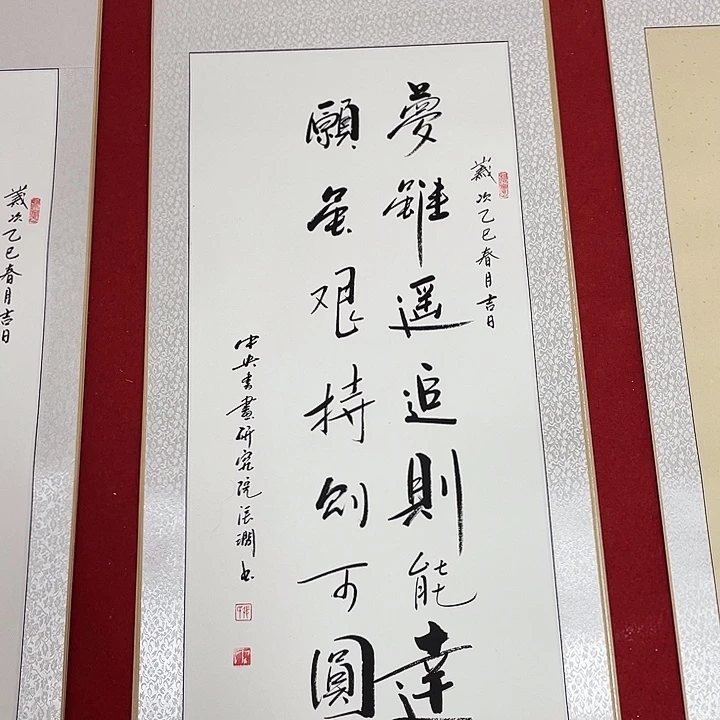 歲次乙巳春月吉日
夢雖遥追則能達
願虽艰持则可圓
中央书畫研究院张书
歲次乙巳春月吉日